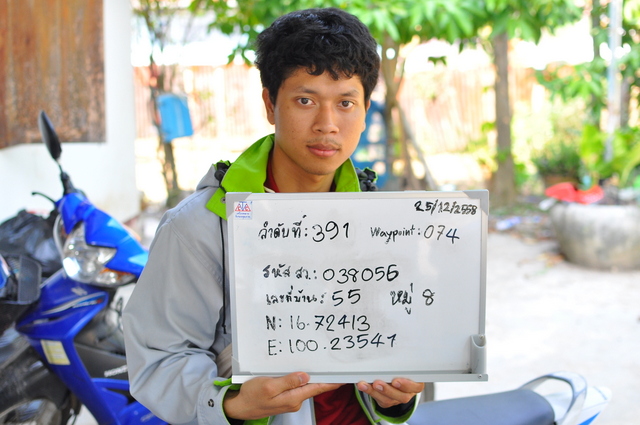 25/12/2558
ลำดับที่: 391 Waypoint: 074
รหัส สว.: 038056
เลขที่บ้าน: 55 หมู่ 8
N: 16.72413
E: 100.23547